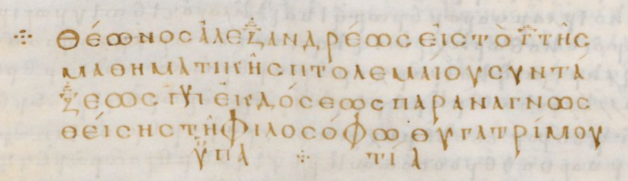 ⁘ Θέωνος ἀλεξανδρέως εἰς τὸ γ̅ τῆς
μαθηματικῆς πτολεμαίου συντά
ξεως ἐκδόσεως παραναγνωσ
θείσης τῆ φιλοσόφω θυγατρί μου
ὑπα ⁘ τία